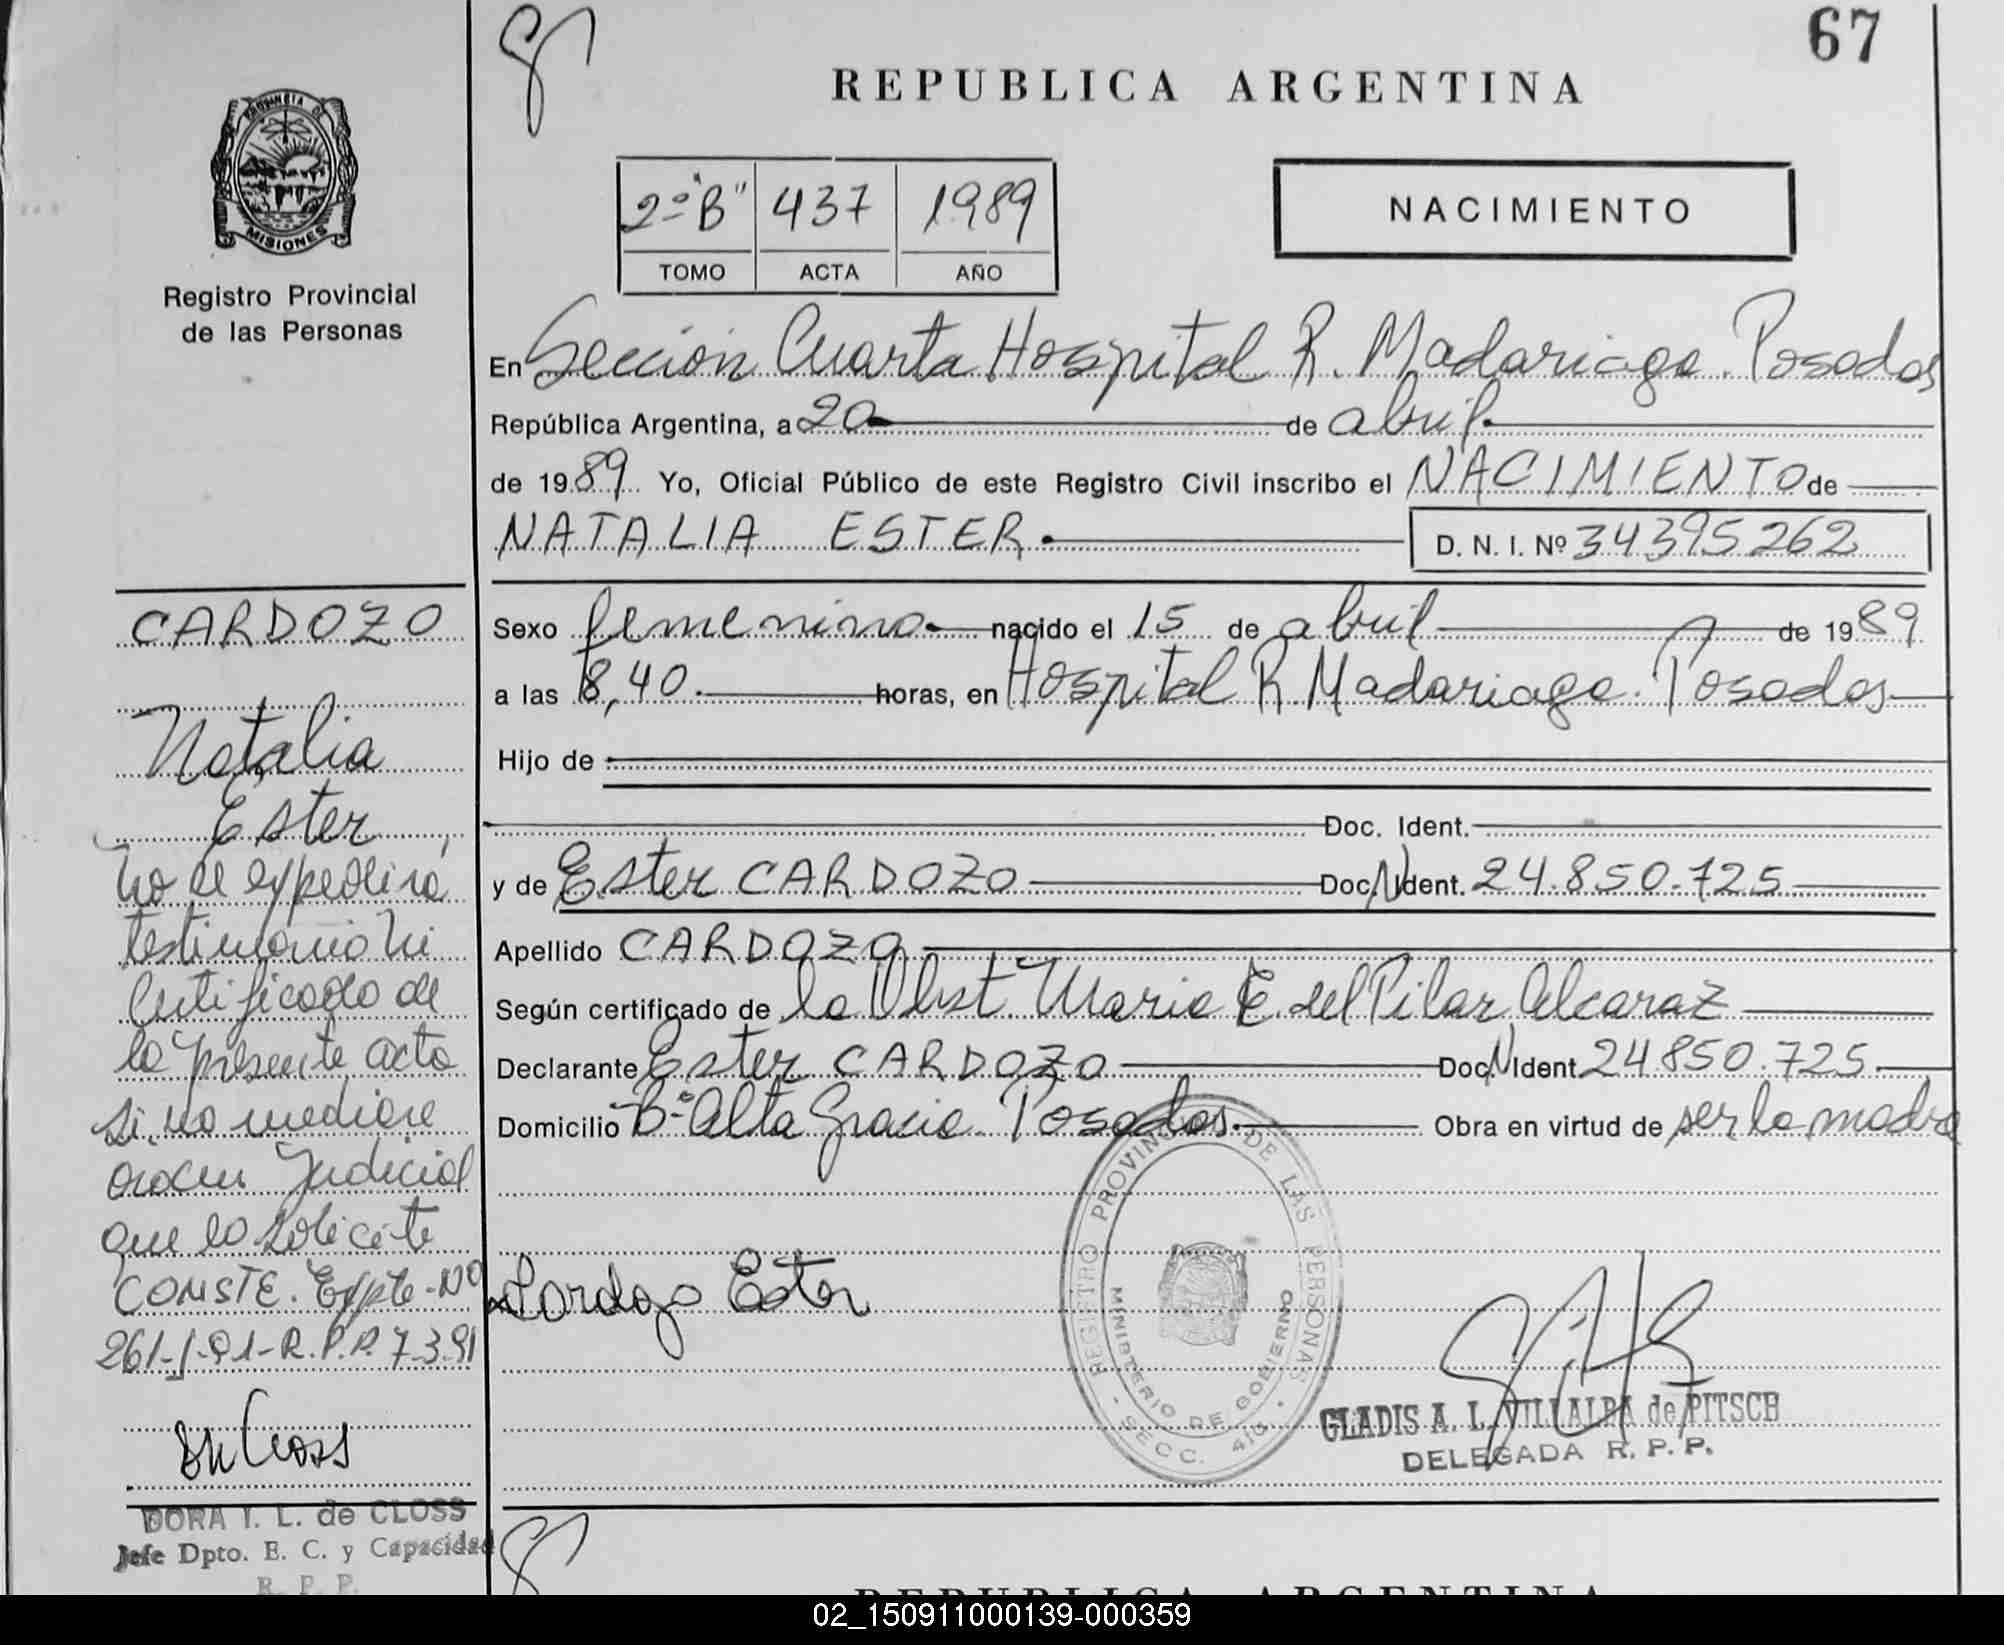 67
REPUBLICA ARGENTINA
PROVINCIA DE
MISIONES
Registro Provincial
de las Personas
2º "B" 437 1989
TOMO ACTA AÑO
NACIMIENTO
En Sección Cuarta Hospital R. Madariaga. Posadas
República Argentina, a 20 de abril.
de 1989. Yo, Oficial Público de este Registro Civil inscribo el NACIMIENTO de
NATALIA ESTER. D. N. I. Nº 34395262
Sexo femenino nacido el 15 de abril de 1989
a las 8,40. horas, en Hospital R. Madariaga. Posadas
Hijo de
Doc. Ident.
y de Ester CARDOZO Doc. N. Ident. 24.850.725
Apellido CARDOZO
Según certificado de la Obst. Maria E. del Pilar Alcaraz
Declarante Ester CARDOZO Doc. N Ident. 24.850.725.
Domicilio Bº Alta Gracia. Posadas. Obra en virtud de ser la madre
Cardozo Ester
REGISTRO PROVINCIAL DE LAS PERSONAS
MINISTERIO DE GOBIERNO
SECC. 4ta.
GLADIS A. L. VILLALBA de PITSCH
DELEGADA R. P. P.
CARDOZO
Natalia
Ester
No se expedirá
testimonio ni
Certificado de
la presente acta
si no mediare
orden Judicial
que lo solicite
CONSTE. Expte. Nº
261-1-91-R.P.P. 7.3.91
DORA I. L. de CLOSS
Jefe Dpto. E. C. y Capacidad
R. P. P.
REPUBLICA ARGENTINA
02_150911000139-000359